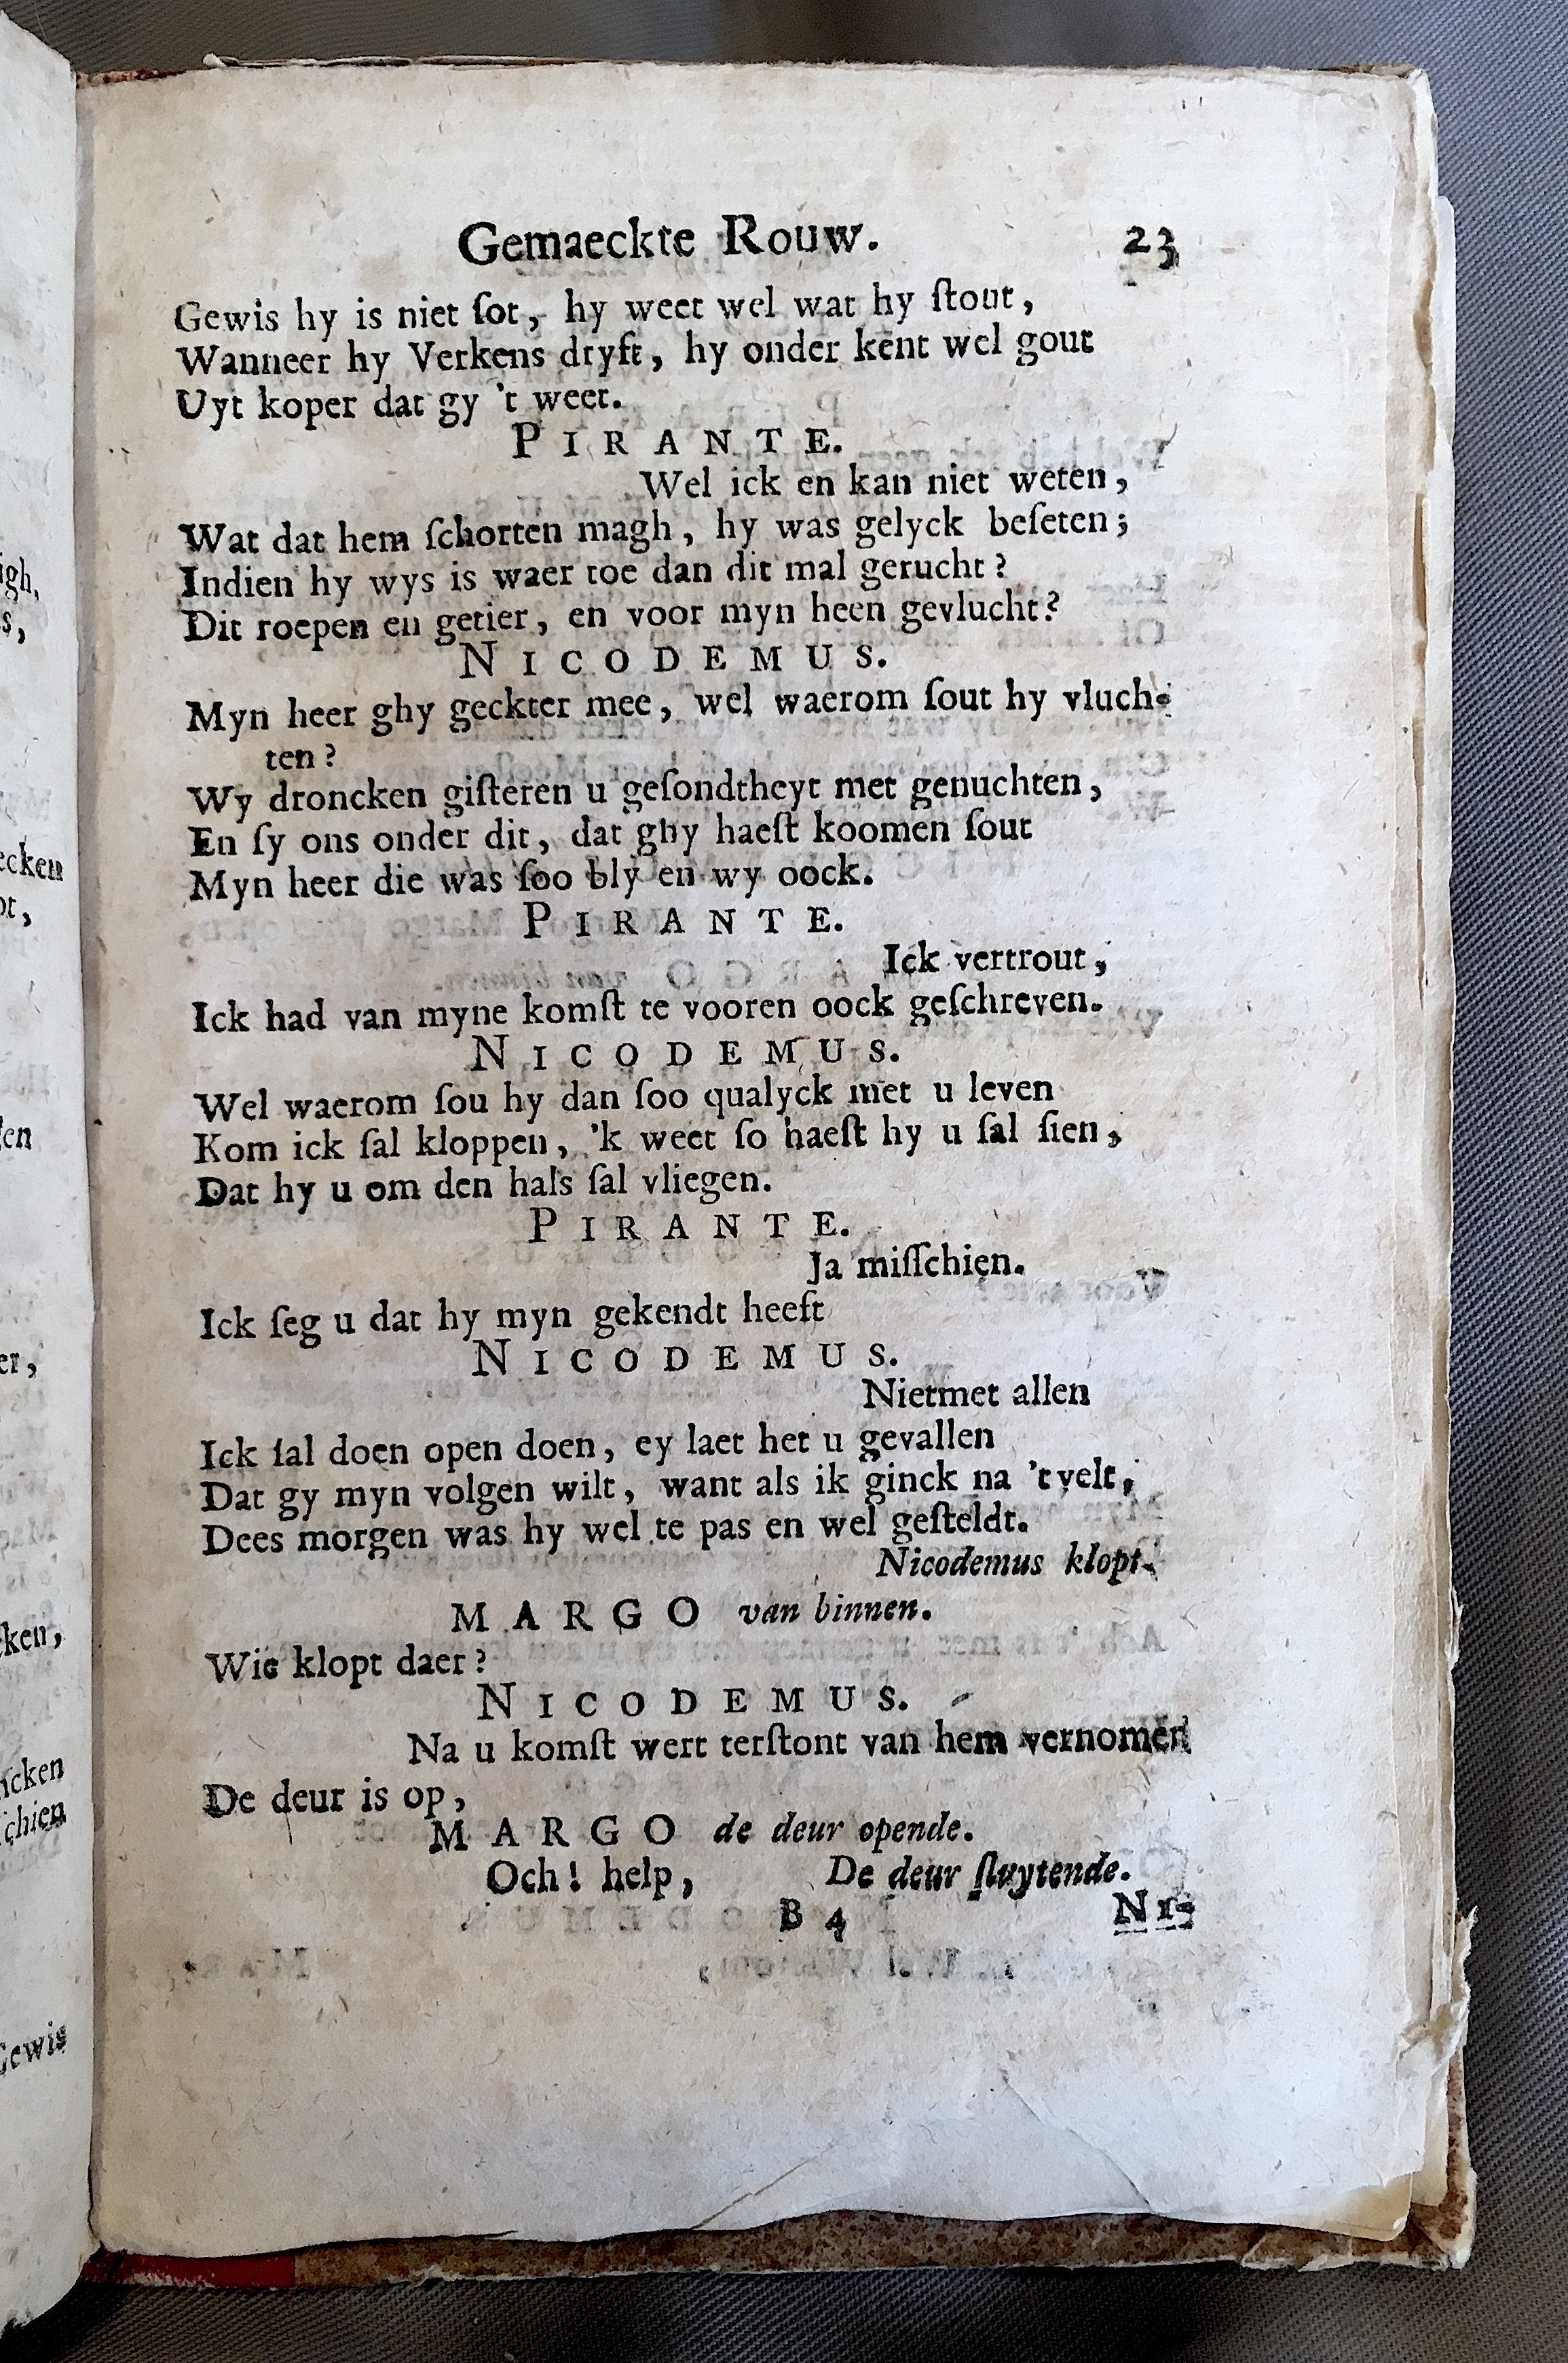 Gemaeckte Rouw. 23
Gewis hy is niet ſot, hy weet wel wat hy ſtout,
Wanneer hy Verkens dryft, hy onder kent wel gout
Uyt koper dat gy 't weet.
PIRANTE.
Wel ick en kan niet weten,
Wat dat hem ſchorten magh, hy was gelyck beſeten;
Indien hy wys is waer toe dan dit mal gerucht?
Dit roepen en getier, en voor myn heen gevlucht?
NICODEMUS.
Myn heer ghy geckter mee, wel waerom ſout hy vluch-
ten?
Wy droncken giſteren u geſondtheyt met genuchten,
En ſy ons onder dit, dat ghy haeſt koomen ſout
Myn heer die was ſoo bly en wy oock.
PIRANTE.
Ick vertrout,
Ick had van myne komſt te vooren oock geſchreven.
NICODEMUS.
Wel waerom ſou hy dan ſoo qualyck met u leven
Kom ick ſal kloppen, 'k weet ſo haeſt hy u ſal ſien,
Dat hy u om den hals ſal vliegen.
PIRANTE.
Ja miſſchien.
Ick ſeg u dat hy myn gekendt heeft
NICODEMUS.
Nietmet allen
Ick ſal doen open doen, ey laet het u gevallen
Dat gy myn volgen wilt, want als ik ginck na 't velt,
Dees morgen was hy wel te pas en wel geſteldt.
Nicodemus klopt.
MARGO van binnen.
Wie klopt daer?
NICODEMUS.
Na u komſt wert terſtont van hem vernomen
De deur is op,
MARGO de deur opende.
Och! help, De deur ſluytende.
B 4 NI-